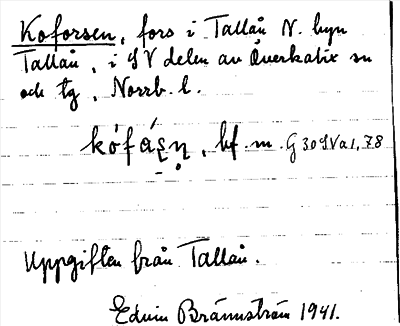 Koforsen, fors i Tallån N. byn
Tallån, i SV delen av Överkalix sn
och tg, Norrb. l.
kófás̨n̥, bf. m. G 30 SVa1, 78
Uppgiften från Tallån.
Edvin Brännström 1941.